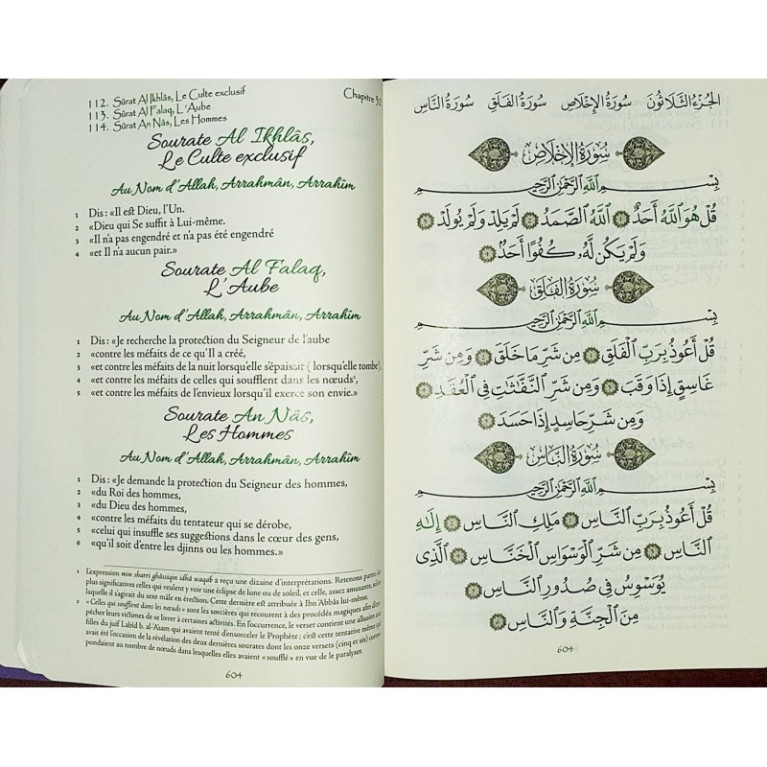 112. Sûrat Al Ikhlâs, Le Culte exclusif
113. Sûrat Al Falaq, L'Aube
114. Sûrat An Nâs, Les Hommes
Chapitre 30
Sourate Al Ikhlâs,
Le Culte exclusif
Au Nom d'Allah, Arrahmân, Arrahîm
1 Dis : «Il est Dieu, l'Un.
2 «Dieu qui Se suffit à Lui-même.
3 «Il n'a pas engendré et n'a pas été engendré
4 «et Il n'a aucun pair.»
Sourate Al Falaq,
L'Aube
Au Nom d'Allah, Arrahmân, Arrahîm
1 Dis : «Je recherche la protection du Seigneur de l'aube
2 «contre les méfaits de ce qu'Il a créé,
3 «et contre les méfaits de la nuit lorsqu'elle s'épaissit ( lorsqu'elle tombe¹).
4 «et contre les méfaits de celles qui soufflent dans les nœuds²,
5 «et contre les méfaits de l'envieux lorsqu'il exerce son envie.»
Sourate An Nâs,
Les Hommes
Au Nom d'Allah, Arrahmân, Arrahîm
1 Dis : «Je demande la protection du Seigneur des hommes,
2 «du Roi des hommes,
3 «du Dieu des hommes,
4 «contre les méfaits du tentateur qui se dérobe,
5 «celui qui insuffle ses suggestions dans le cœur des gens,
6 «qu'il soit d'entre les djinns ou les hommes.»
1 L'expression min sharri ghâsiqin idhâ waqab a reçu une dizaine d'interprétations. Retenons parmi les
plus significatives celles qui veulent y voir une éclipse de lune ou de soleil, et celle, assez amusante, selon
laquelle il s'agirait du sexe mâle en érection. Cette dernière est attribuée à Ibn 'Abbâs lui-même.
2 « Celles qui soufflent dans les nœuds » sont les sorcières qui recourent à des procédés magiques afin d'em-
pêcher leurs victimes de se livrer à certaines activités. En l'occurrence, le verset contient une allusion aux
filles du juif Labîd b. al-'Asam qui avaient tenté d'ensorceler le Prophète ; c'est cette tentative même qui
avait été l'occasion de la révélation des deux dernières sourates dont les onze versets (cinq et six) corres-
pondaient au nombre de nœuds dans lesquelles elles avaient « soufflé » en vue de le paralyser.
604
الجزء الثلاثون سورة الإخلاص سورة الفلق سورة الناس
سُورَةُ الإِخْلَاصِ
بِسْمِ ٱللَّهِ ٱلرَّحْمَٰنِ ٱلرَّحِيمِ
قُلْ هُوَ ٱللَّهُ أَحَدٌ ١ ٱللَّهُ ٱلصَّمَدُ ٢ لَمْ يَلِدْ وَلَمْ يُولَدْ ٣
وَلَمْ يَكُن لَّهُۥ كُفُوًا أَحَدٌۢ ٤
سُورَةُ الفَلَقِ
بِسْمِ ٱللَّهِ ٱلرَّحْمَٰنِ ٱلرَّحِيمِ
قُلْ أَعُوذُ بِرَبِّ ٱلْفَلَقِ ١ مِن شَرِّ مَا خَلَقَ ٢ وَمِن شَرِّ
غَاسِقٍ إِذَا وَقَبَ ٣ وَمِن شَرِّ ٱلنَّفَّٰثَٰتِ فِى ٱلْعُقَدِ ٤
وَمِن شَرِّ حَاسِدٍ إِذَا حَسَدَ ٥
سُورَةُ النَّاسِ
بِسْمِ ٱللَّهِ ٱلرَّحْمَٰنِ ٱلرَّحِيمِ
قُلْ أَعُوذُ بِرَبِّ ٱلنَّاسِ ١ مَلِكِ ٱلنَّاسِ ٢ إِلَٰهِ
ٱلنَّاسِ ٣ مِن شَرِّ ٱلْوَسْوَاسِ ٱلْخَنَّاسِ ٤ ٱلَّذِى
يُوَسْوِسُ فِى صُدُورِ ٱلنَّاسِ ٥
مِنَ ٱلْجِنَّةِ وَٱلنَّاسِ ٦
604